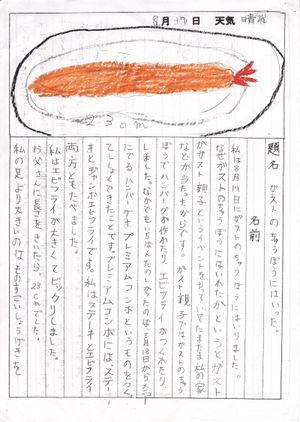 8月17日 天気 晴れ
23cm
題名 ガストのちゅうぼうにはいった。
名前
私は8月17日にガストのちゅうぼうにはいりました。
なぜガストのちゅうぼうにはいれたかというとガスト
がガスト親子というイベントを行っていてたまたま私の家
などが当たったからです。ガスト親子ではガストのちゅう
ぼうでハンバーグが作れたり、エビフライがつくれたり
しました。なかでもいちばんたのしかったのは、8月18日からメニュー
にでるハンバーグ プレミアムコンボというものをつくっ
てしょくできたことです。プレミアムコンボには、ステー
キと、ジャンボエビフライです。私はステーキとエビフライ
両方ともたべました。
私はエビフライが大きくてビックリしました。
お父さんに長さをきいたら、23cmでした。
私の足より大きいのはものすごいしょうげきを